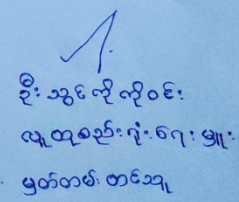 ဦးသွင်ကိုကိုဝင်း
လူထုစည်းရုံးရေးမှူး
မှတ်တမ်းတင်သူ